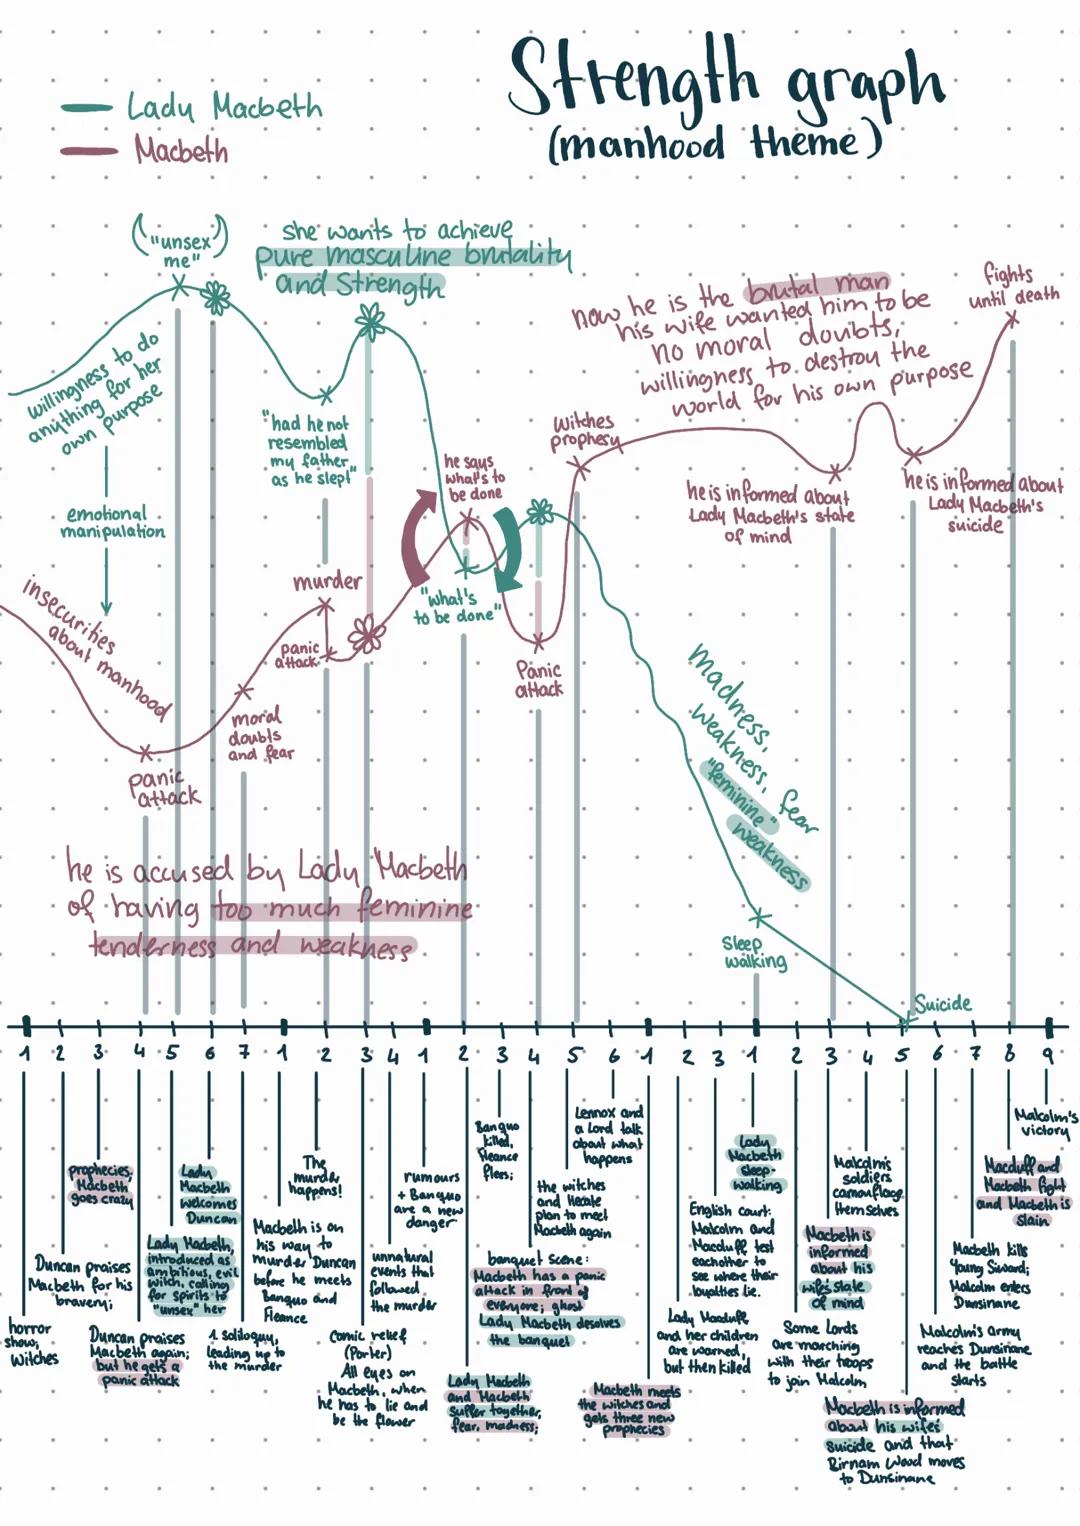 Strength graph
(manhood theme)
Lady Macbeth
Macbeth
("unsex
me")
she wants to achieve
pure masculine brutality
and Strength
willingness to do
anything for her
own purpose
emotional
manipulation
"had he not
resembled
my father
as he slept"
he says
what's to
be done
"what's
to be done"
Witches
prophesy
now he is the brutal man
his wife wanted him to be
no moral doubts,
willingness to destroy the
world for his own purpose
fights
until death
he is informed about
Lady Macbeth's state
of mind
he is informed about
Lady Macbeth's
suicide
insecurities
about manhood
panic
attack
moral
doubts
and fear
murder
panic
attack
Panic
attack
madness,
weakness, fear
"feminine"
weakness
he is accused by Lady Macbeth
of having too much feminine
tenderness and weakness
Sleep
walking
Suicide
1 2 3 4 5 6 7 1 2 3 4 1 2 3 4 5 6 1 2 3 1 2 3 4 5 6 7 8 9
horror
show;
witches
Duncan praises
Macbeth for his
bravery;
prophecies;
Macbeth
goes crazy
Duncan praises
Macbeth again;
but he gets a
panic attack
Lady Macbeth,
introduced as
ambitious, evil
witch, calling
for spirits to
"unsex" her
Lady
Macbeth
welcomes
Duncan
1. soliloquy,
leading up to
the murder
Macbeth is on
his way to
murder Duncan
before he meets
Banquo and
Fleance
The
murder
happens!
Comic relief
(Porter)
All eyes on
Macbeth, when
he has to lie and
be the flower
unnatural
events that
followed
the murder
rumours
+ Banquo
are a new
danger
Lady Macbeth
and Macbeth
suffer together,
fear, madness;
Banquo
killed,
Fleance
flees;
banquet scene:
Macbeth has a panic
attack in front of
everyone; ghost
Lady Macbeth desolves
the banquet
the witches
and Hecate
plan to meet
Macbeth again
Lennox and
a Lord talk
about what
happens
Macbeth meets
the witches and
gets three new
prophecies
Lady Macduff
and her children
are warned,
but then killed
English court:
Malcolm and
Macduff test
eachother to
see where their
loyalties lie.
Lady
Macbeth
sleep-
walking
Some Lords
are marching
with their troops
to join Malcolm
Macbeth is
informed
about his
wifes state
of mind
Malcolm's
soldiers
camouflage
themselves
Macbeth is informed
about his wifes
suicide and that
Birnam Wood moves
to Dunsinane
Malcolm's army
reaches Dunsinane
and the battle
starts
Macbeth kills
Young Siward;
Malcolm enters
Dunsinane
Macduff and
Macbeth fight
and Macbeth is
slain
Malcolm's
victory